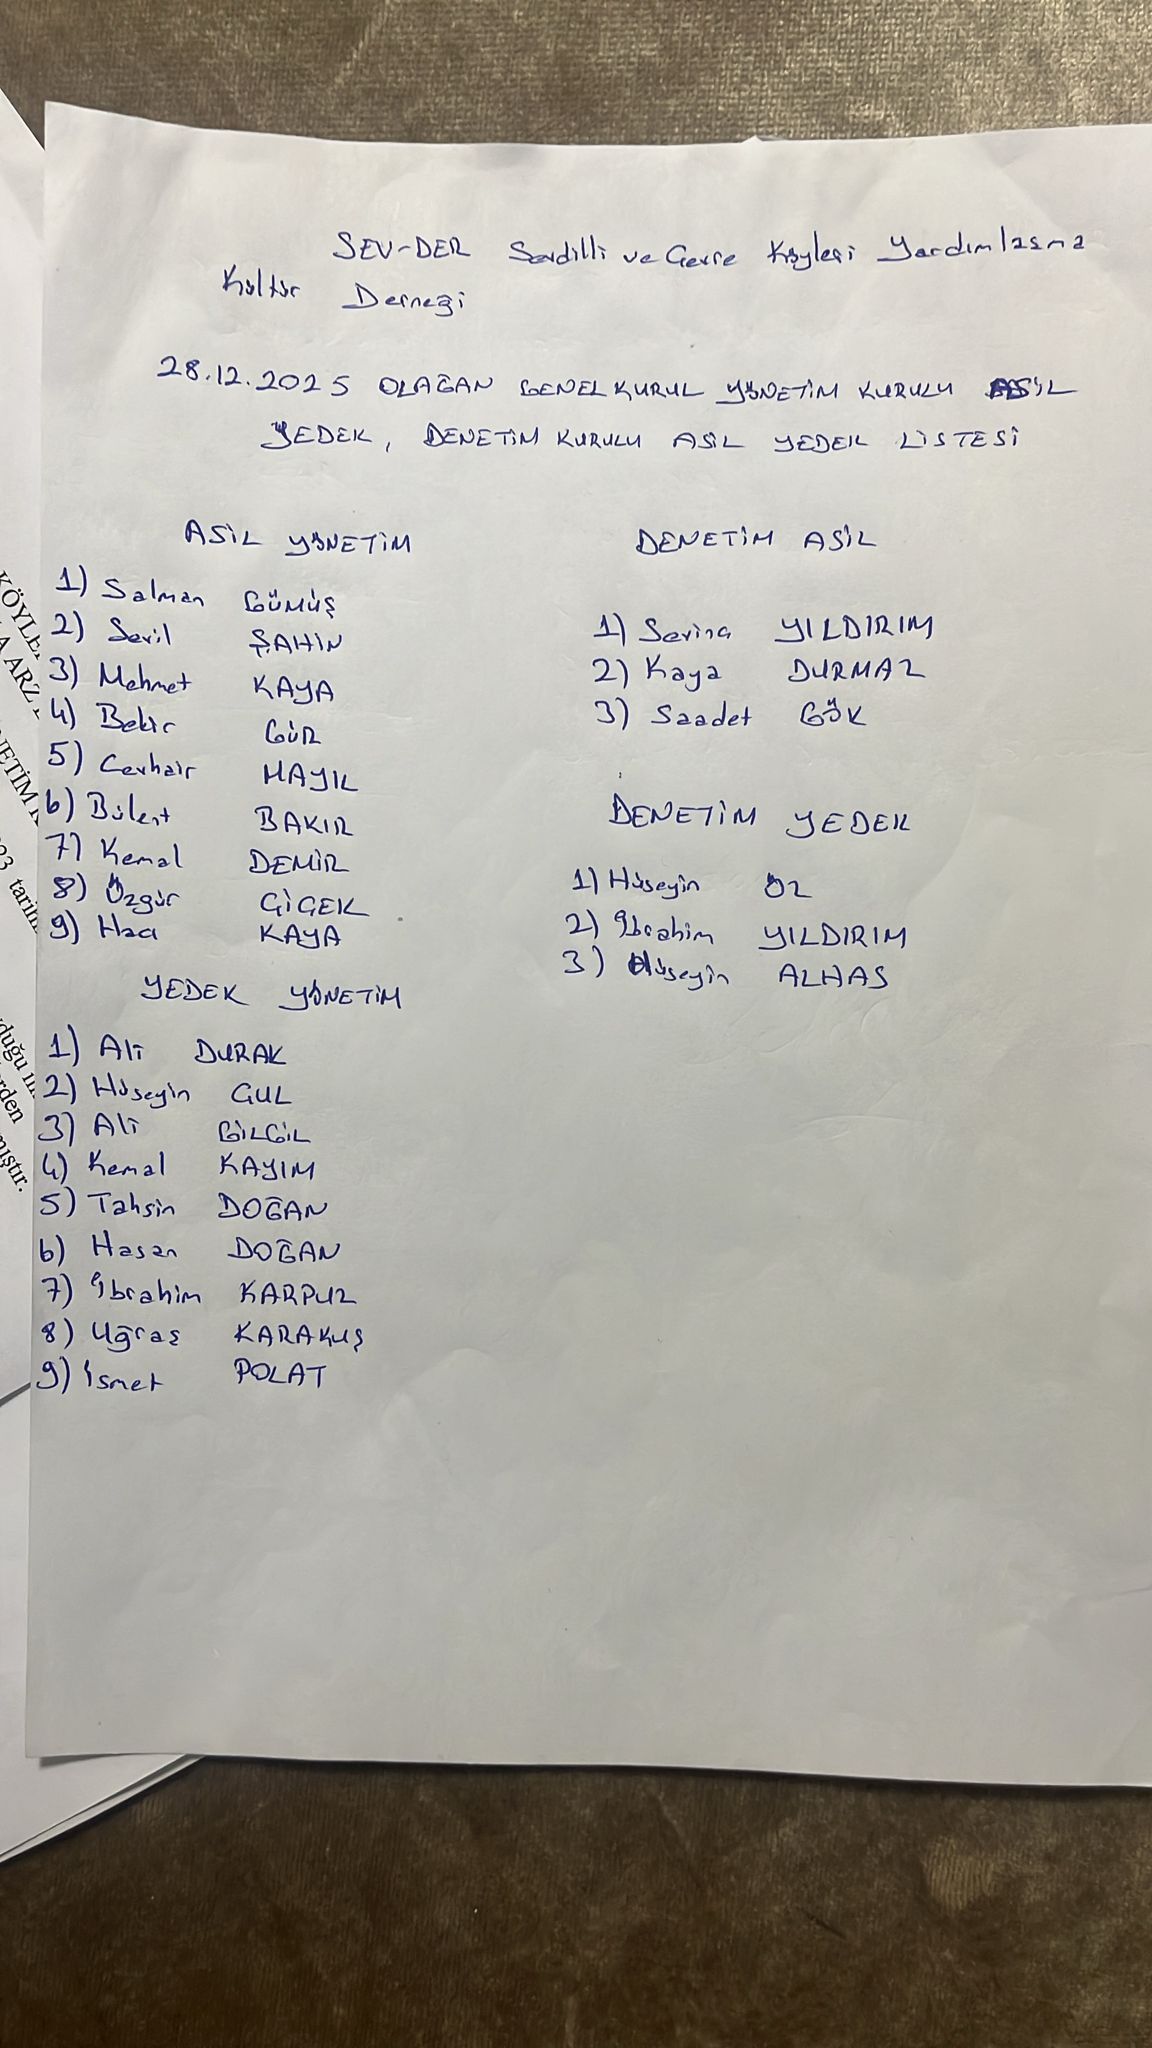 SEV-DER Sevdilli ve Çevre Köyleri Yardımlaşma
Kültür Derneği
28.12.2025 OLAĞAN GENEL KURUL YÖNETİM KURULU ASİL
YEDEK, DENETİM KURULU ASİL YEDEK LİSTESİ
ASİL YÖNETİM
1) Salman GÜMÜŞ
2) Sevil ŞAHİN
3) Mehmet KAYA
4) Bekir GÜR
5) MAYIL
6) Bülent BAKIR
7) Kemal DEMİR
8) Özgür ÇİÇEK
9) Hacı KAYA
YEDEK YÖNETİM
1) Ali DURAK
2) Hüseyin GUL
3) Ali GİLGİL
4) Kemal KAYIM
5) Tahsin DOĞAN
6) Hasan DOĞAN
7) İbrahim KARPUZ
8) Uğraş KARAKUŞ
9) İsmet POLAT
DENETİM ASİL
1) YILDIRIM
2) Kaya DURMAZ
3) Saadet GÖK
DENETİM YEDEK
1) Hüseyin ÖZ
2) İbrahim YILDIRIM
3) Hüseyin ALHAS
KÖYLE
A ARZ
NETİM K
tarih
duğu
rden
mıştır.